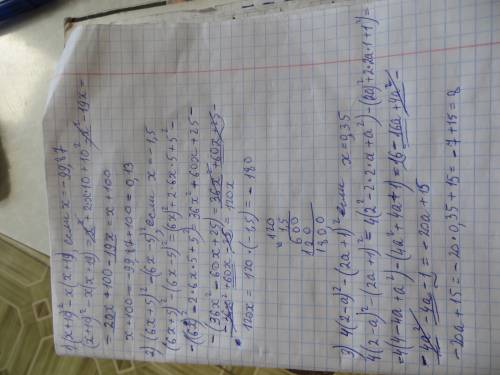 1) (x+10)² - x(x+19) если x = -99,87
(x+10)² - x(x+19) = x² + 2x·10 + 10² - x² - 19x =
= 20x + 100 - 19x = x + 100
x + 100 = -99,87 + 100 = 0,13
2) (6x+5)² - (6x-5)², если x = -1,5
(6x+5)² - (6x-5)² = (6x)² + 2·6x·5 + 5² -
- ((6x)² - 2·6x·5 + 5²) = 36x² + 60x + 25 -
- (36x² - 60x + 25) = 36x² + 60x + 25 -
- 36x² + 60x - 25 = 120x
120x = 120·(-1,5) = -180
120
1,5
600
120
180,0
3) 4(2-a)² - (2a+1)² если x = 0,35
4(2-a)² - (2a+1)² = 4(2² - 2·2·a + a²) - ((2a)² + 2·2a·1 + 1²) =
= 4(4 - 4a + a²) - (4a² + 4a + 1) = 16 - 16a + 4a² -
- 4a² - 4a - 1 = -20a + 15
-20a + 15 = -20·0,35 + 15 = -7 + 15 = 8